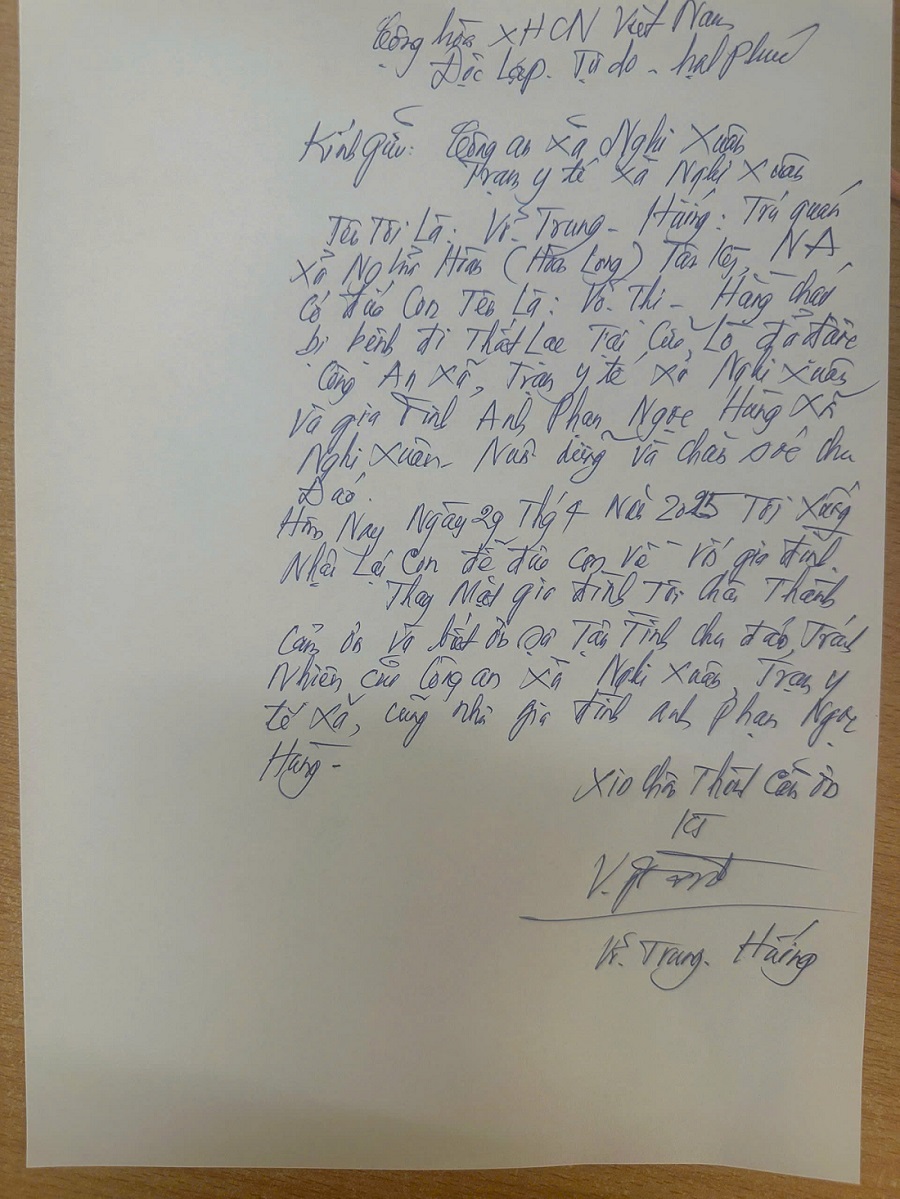 Cộng hòa XHCN Việt Nam
Độc Lập. Tự do - hạnh phúc
Kính gửi: Công an xã Nghi Xuân
Trạm y tế xã Nghi Xuân
Tên Tôi Là: Võ Trung - Hiếng: Trú quán
xã Nghĩa Hoàn (Hòa Long) Tân Kỳ, NA
có đứa Con Tên Là: Võ. Thị - Hằng cháu
bị bệnh đi Thất Lạc Tại Cửa Lò đã được
Công An xã, Trạm y tế xã Nghi Xuân
Và gia Đình Anh Phan Ngọc Hùng Xã
Nghi Xuân - Nuôi dưỡng và chăm sóc chu
Đáo.
Hôm Nay Ngày 29 Thg 4 Năm 2025 Tôi Xuống
Nhận Lại Con để đưa con về với gia đình.
Thay Mặt gia đình Tôi chân Thành
Cảm ơn và biết ơn sự Tận Tình chu đáo, Trách
Nhiệm của Công an xã Nghi Xuân, Trạm y
tế Xã, cũng như gia đình anh Phan Ngọc
Hùng -
Xin Chân Thành Cảm ơn
KT
Võ. Trung. Hiếng